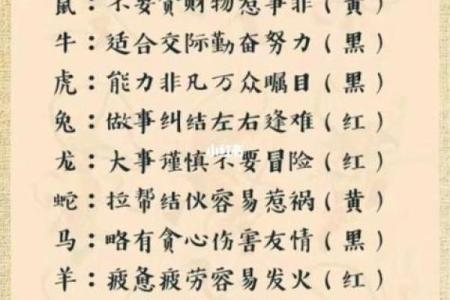 鼠：不要贪财物惹事非（黄）
牛：适合交际勤奋努力（黑）
虎：能力非凡万众瞩目（黑）
兔：做事纠结左右逢难（红）
小红书
龙：大事谨慎不要冒险（红）
蛇：拉帮结伙容易惹祸（黄）
马：略有贪心伤害友情（黑）
羊：疲惫疲劳容易发火（红）